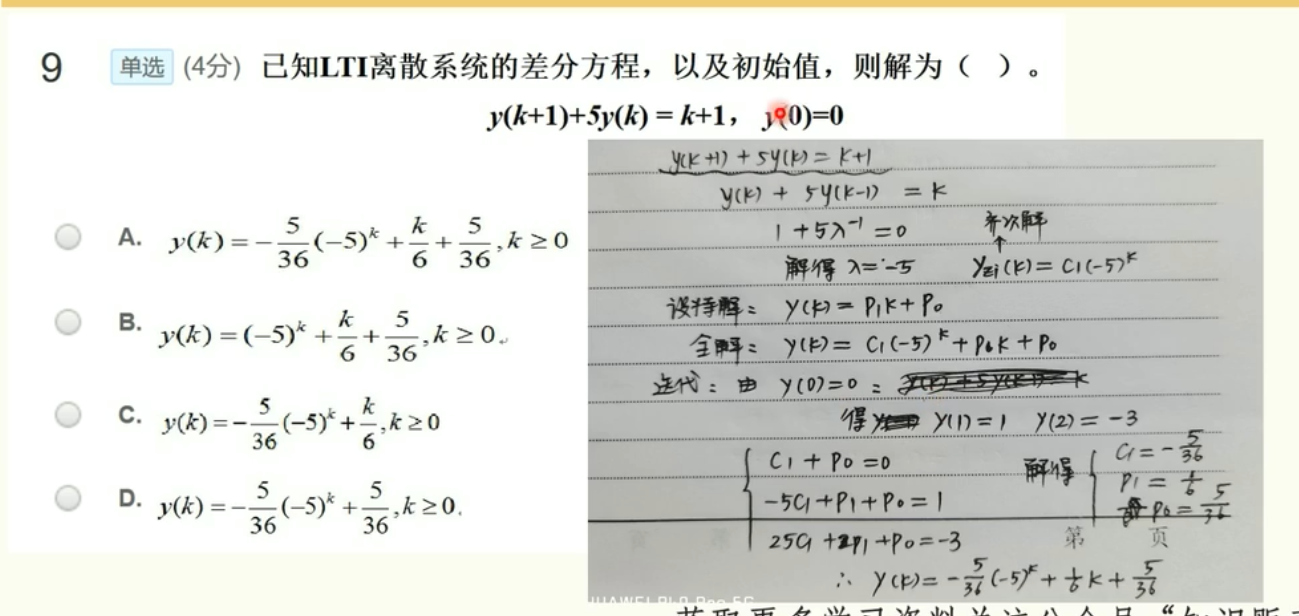 9 单选 (4分) 已知LTI离散系统的差分方程，以及初始值，则解为（ ）。
y(k+1)+5y(k) = k+1， y(0)=0
A. y(k) = -5/36(-5)^k + k/6 + 5/36, k ≥ 0
B. y(k) = (-5)^k + k/6 + 5/36, k ≥ 0.
C. y(k) = -5/36(-5)^k + k/6, k ≥ 0
D. y(k) = -5/36(-5)^k + 5/36, k ≥ 0.
y(k+1) + 5y(k) = k+1
y(k) + 5y(k-1) = k
1 + 5λ^-1 = 0 齐次解
↑
解得 λ = -5 yzi(k) = C1(-5)^k
设特解： y(k) = P1k + P0
全解： y(k) = C1(-5)^k + P1k + P0
迭代：由 y(0)=0：
得 y(1)=1 y(2)=-3
C1 + P0 = 0
-5C1 + P1 + P0 = 1
25C1 + 2P1 + P0 = -3
解得
C1 = -5/36
P1 = 1/6
P0 = 5/36
第 页
∴ y(k) = -5/36(-5)^k + 1/6k + 5/36